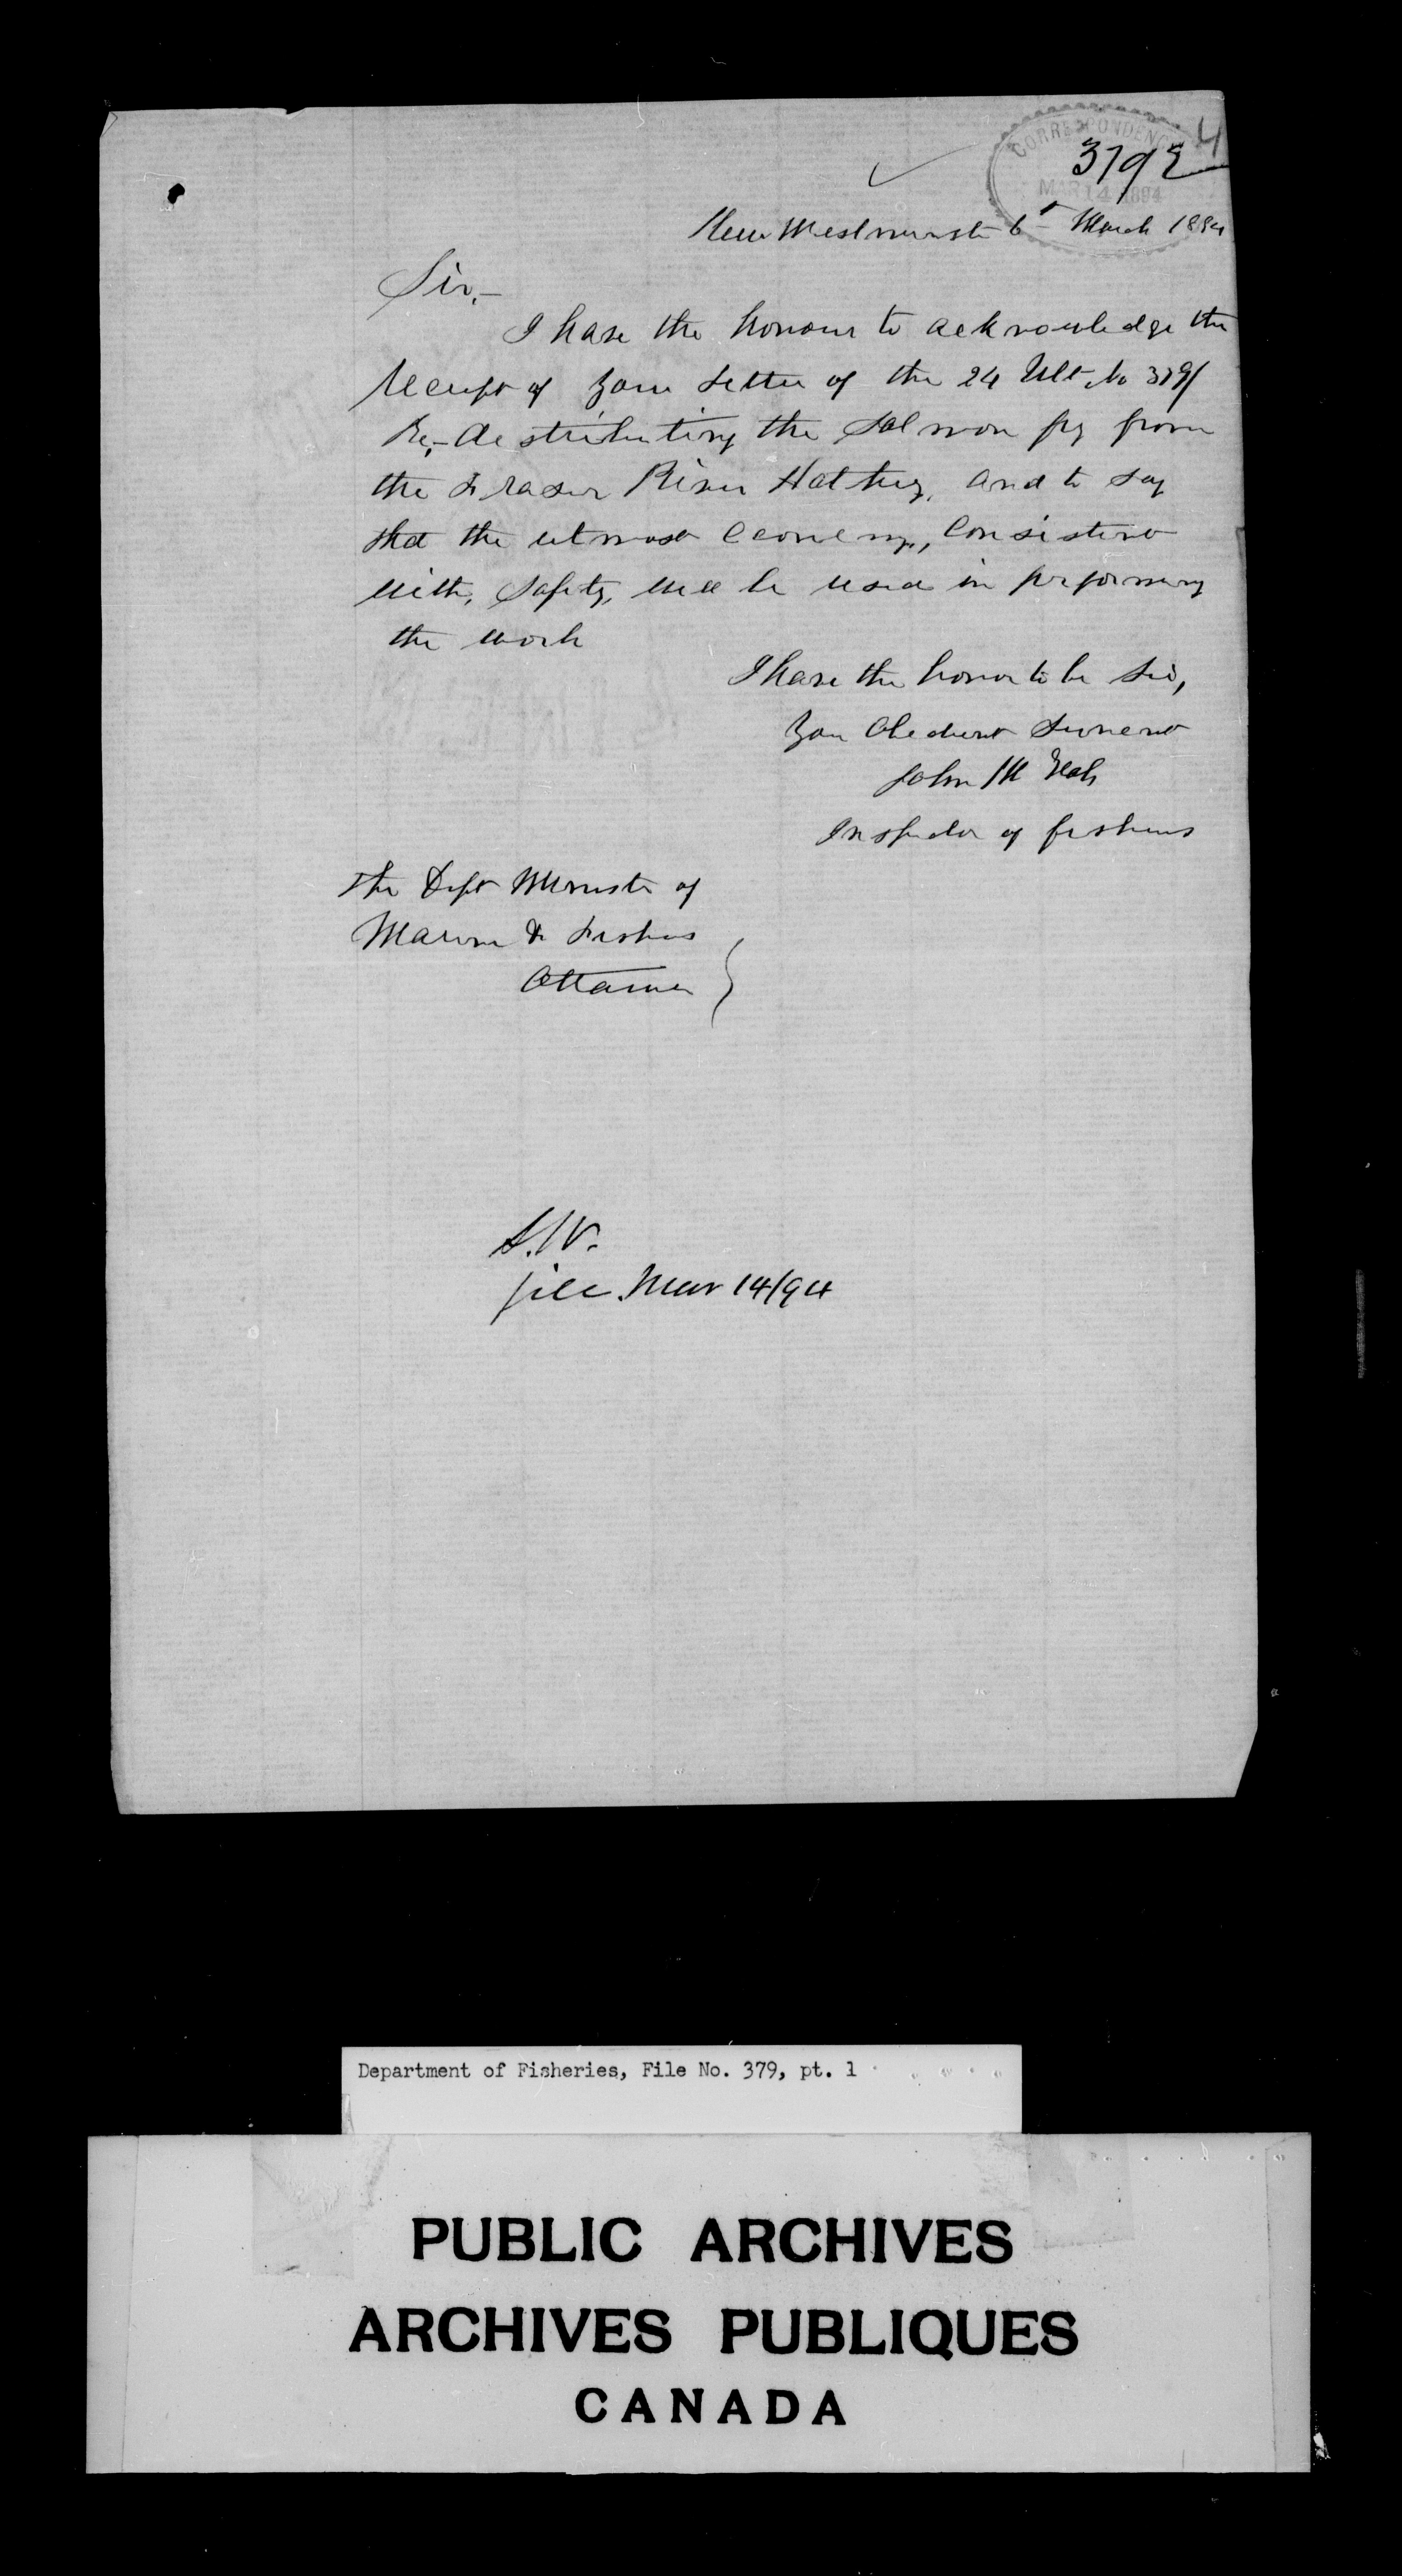 4
CORRESPONDENCE
3792
MAR 14 1894
New Westminster 6th March 1894
Sir,-
I have the honour to acknowledge the
receipt of your Letter of the 24 Ult. No 379/
Re,- distributing the Salmon fry from
the Fraser River Hatchery, and to say
that the utmost economy, Consistent
with, Safety, will be used in performing
the work
I have the honor to be Sir,
Your Obedient Servant
John McNab
Inspector of fisheries
The Dept Minister of
Marine & Fisheries
Ottawa
S.W.
file Mar 14/94
Department of Fisheries, File No. 379, pt. 1
PUBLIC ARCHIVES
ARCHIVES PUBLIQUES
CANADA